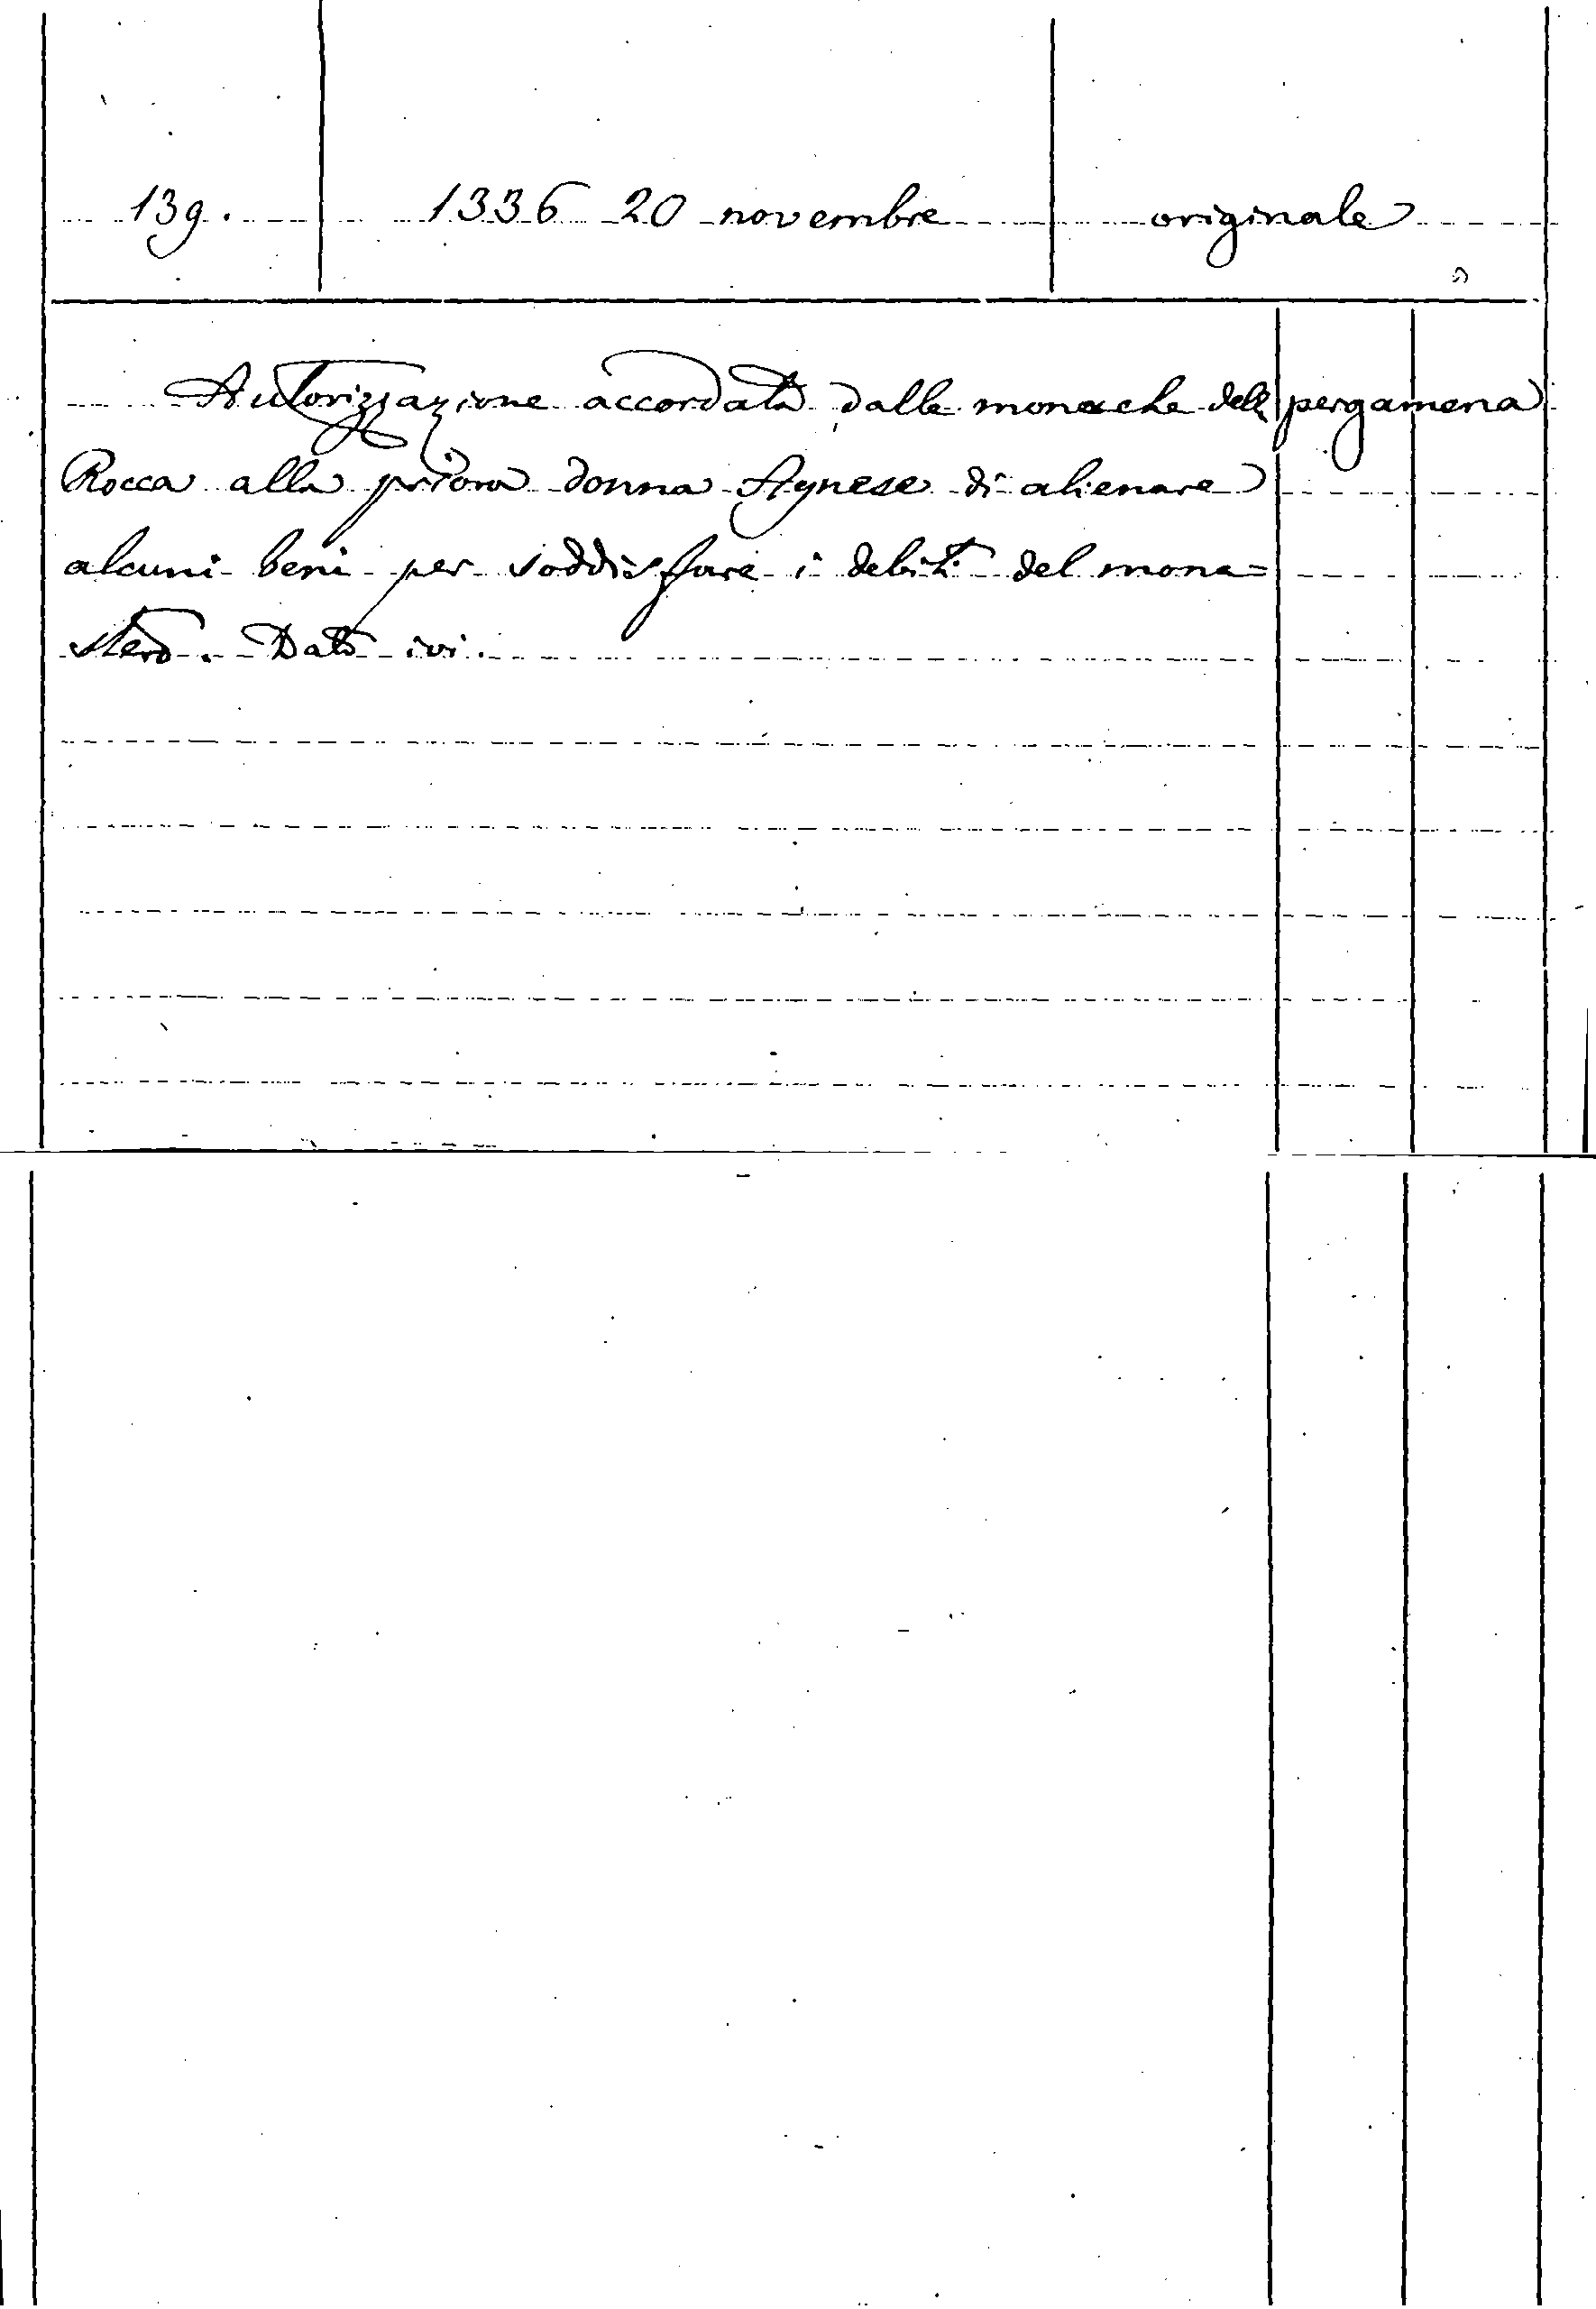 139. 1336 20 novembre originale
Autorizzazione accordata dalle monache della pergamena
Rocca alla priora donna Agnese di alienare
alcuni beni per soddisfare i debiti del mona=
stero. Dato ivi.